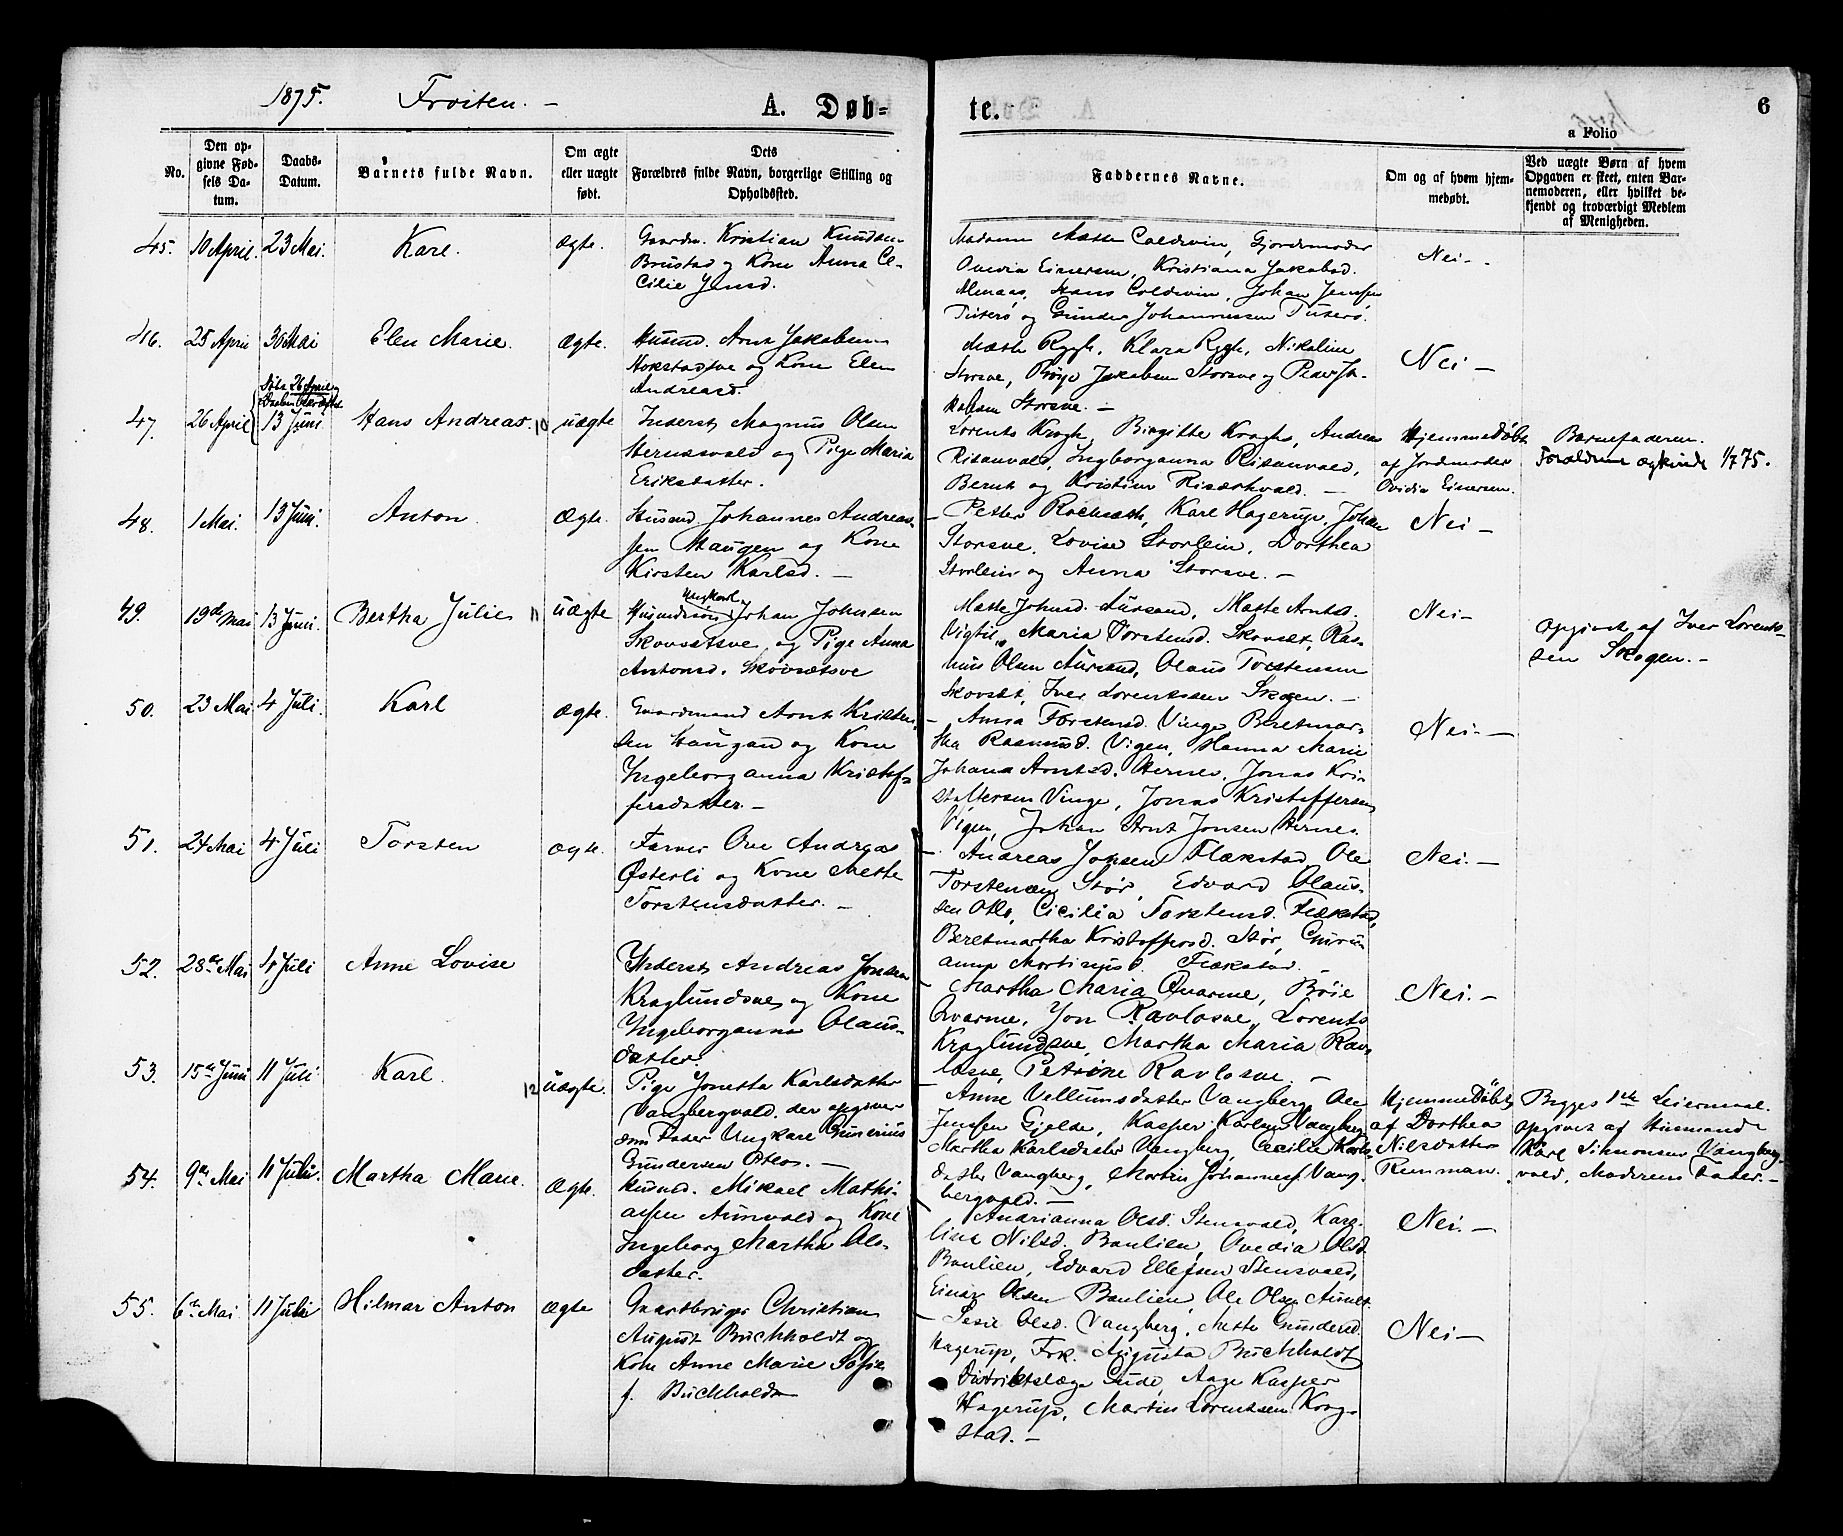 1875. Frosten. — A. Døb= te. 6
a Folio
No.
Den op-
givne Fød-
sels Da-
tum.
Daabs-
Datum.
Barnets fulde Navn.
Om ægte
eller uægte
født.
Dets
Forældres fulde Navn, borgerlige Stilling og
Opholdssted.
Faddernes Navne.
Om og af hvem hjem-
medøbt.
Ved uægte Børn af hvem
Opgaven er skeet, enten Bar-
nemoderen, eller hvilket be-
kjendt og troværdigt Medlem
af Menigheden.
45. 10 April. 23 Mai. Karl. Ægte.
Gaardm. Kristian Knudsen
Brustad og Kone Anna Ce-
cilie Jensd.
Madame Mette Coldevin, Gjordemoder
Ovedia Einersen, Kristiana Jakobsd.
Almaas, Hans Coldevin, Johan Jensen
Tuterø og Gunder Johannessen Tuterø.
Nei —
46. 25 April 30 Mai Elen Marie. Ægte.
Husmd. Arnt Jakobsen
Hokstadsve og Kone Elen
Andreasd.
Mette Rygh, Klara Rygh, Nikoline
Storsve, Böye Jakobsen Storsve og Peder Ja-
kobsen Storsve. —
Nei —
47. 26 April 13 Juni Hans Andreas. 10 uægte
Inderst Magnus Olsen
og Pige Maria
Eriksdatter.
Lorents Krogh, Birgitte Kroghs, Andreas
Risanvald, Ingborganna Risanvald,
Bernt og Kristine —
Hjemmedøbt
af Jordmoder
Ovidia Einersen.
Barnefaderen.
Forældrene 1/7 75.
48. 1 Mai. 13 Juni. Anton. Ægte.
Husmd. Johannes Andreas-
sen Haugen og Kone
Kirsten Karlsd. —
— Petter Karl Hagerup, Johan
Storsve, Lovise Storlein, Dorthea
Storlein og Anna Storsve. —
Nei —
49. 19de Mai 13 Juni. Bertha Julie 11 uægte
Ungkarl
Husmdssøn Johan Johnsen
Skovsetsve, og Pige Anna
Antonsd. Skovsetsve
Mette Johnsd. Aursand, Mette Arntsd.
Vigtil, Maria Torstensd. Skovset, Ras-
mus Olsen Aursand, Olaus Torstensen
Skovset, Iver Lorentssen Skogen. —
Nei —
opgivet af Iver Lorents-
sen Skogen. —
50. 23 Mai 4 Juli. Karl Ægte.
Gaardmand Arnt Kristen-
sen Haugan og Kone
Ingeborganna Kristof-
fersdatter. —
— Anna Torstensd. Vinge Beretmar-
tha Rasmusd. Vigen, Hanna Marie
Johana Arntsd. Hernes, Jonas Kri-
stoffersen Vinge, Jonas Kristoffersen
Vigen, Johan Arnt Jonsen Hernes
Nei. —
51. 24 Mai 4 Juli Torsten Ægte.
Farver Ove Andreas
Østerli og Kone Mette
Torstensdatter. —
— Andreas Jonsen Flækstad, Ole
Torstensen Stör, Edvard Olaus-
sen Otlo, Cicilia Torstensd. Flækstad,
Beretmartha Kristoffersd. Stør, Gurun
anna Flækstad.
Nei. —
52. 28de Mai 4 Juli Anne Lovise
Inderst Andreas Jonsen
Kraglundsve og Kone
Ingeborganna Olaus-
datter.
— Martha Maria Qvarme, Böie
Qvarme, Jon Ravlosve, Lorents
Kraglundsve, Martha Maria Rav-
losve, Petrine Ravlosve. —
Nei. —
53. 15de Juni 11 Juli Karl. 12 uægte.
Pige Jonetta Karlsdatter
Vangbergvald, der opgiver
som Fader Ungkarl Gunerius
Gundersen Otlo. —
— Anne Vellumsdatter Vangberg, Ole
Jensen Gjelde, Kasper Karlsen Vangberg
Martha Karlsdatter Vangberg, Cecilie Karls-
datter Vangberg, Martin Johannesf. Vang-
bergvald. —
Hjemmedøbt
af Dorthea
Nilsdatter
Renman.
Begges 1ste Leiermaal.
opgivet af Husmand
Karl Simonsen Vangberg-
vald, Moderens Fader. —
54. 9de Mai 11 Juli. Martha Marie. Ægte.
Husmd. Mikael Mathi-
assen Aunvald og Kone
Ingeborg Martha Ols-
datter.
— Andrianna Olsd. Stensvald, Karo-
line Nilsd. Baulien, Ovedia Olsd.
Baulien, Edvard Ellefsen Stensvald,
Einar Olsen Baulien, Ole Olsen
Nei. —
55. 6te Mai 11 Juli Hilmar Anton Ægte
Gaardbruger Christian
August Buchholdt og
Kone Anne Marie Sofie
f. Buchholdt
— Olsd. Vangberg, Mette Gundersd.
Hagerup, Frk. Augusta Buchholdt
Distriktslæge Gude, Aage Kasper
Hagerup, Martin Lorentsen Krog-
stad. —
Nei —